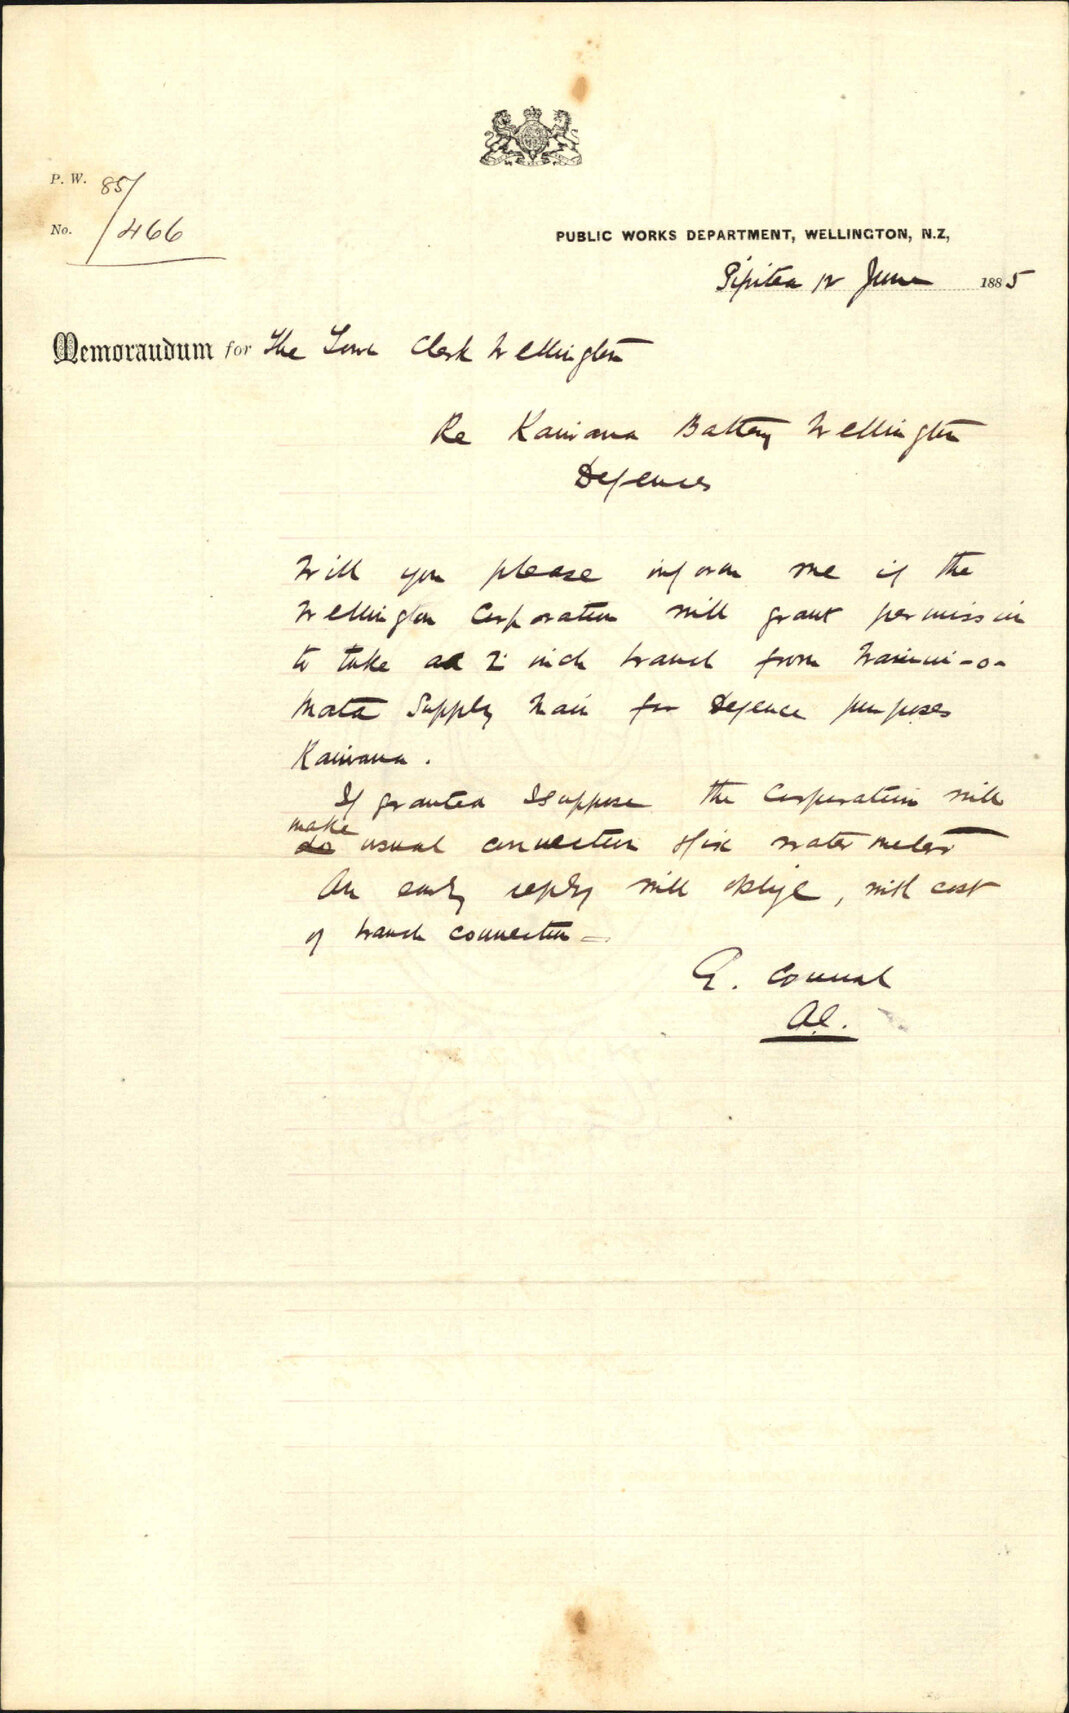 P. W. 85/
No. /466
PUBLIC WORKS DEPARTMENT, WELLINGTON, N.Z,
Pipitea 12 June 1885
Memorandum for The Town Clerk Wellington
Re Kaiwara Battery Wellington
Defences
Will you please inform me if the
Wellington Corporation will grant permission
to take a 2 inch branch from Wainui-o-
Mata Supply Main for Defence purposes
Kaiwara.
If granted I suppose the Corporation will
make
do usual connection & fix water meter
An early reply will oblige, with cost
of branch connection —